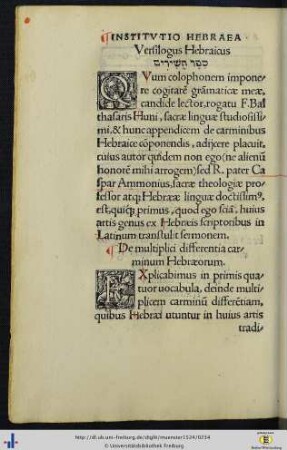 INSTITVTIO HEBRAEA
Versilogus Hebraicus
ספר השירים
QVum colophonem impone
re cogitarē grāmaticæ meæ,
candide lector, rogatu F. Bal
thasaris Huni, sacræ linguæ studiosissi
mi, & hunc appendicem de carminibus
Hebraice cōponendis, adijcere placuit,
cuius autor quidem non ego (ne alienū
honorē mihi arrogem) sed R. pater Ca
spar Ammonius, sacræ theologiæ pro
fessor atq; Hebrææ linguæ doctissim⁹,
est, quiq; primus, quod ego sciā, huius
artis genus ex Hebræis scriptoribus in
Latinum transtulit sermonem.
De multiplici differentia car
minum Hebræorum.
EXplicabimus in primis qua
tuor uocabula, deinde multi
plicem carminū differētiam,
quibus Hebræi utuntur in huius artis
tradi-
http://dl.ub.uni-freiburg.de/diglit/muenster1524/0234
© Universitätsbibliothek Freiburg